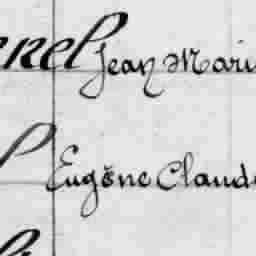 nel Jean Mari
l Eugène Claud